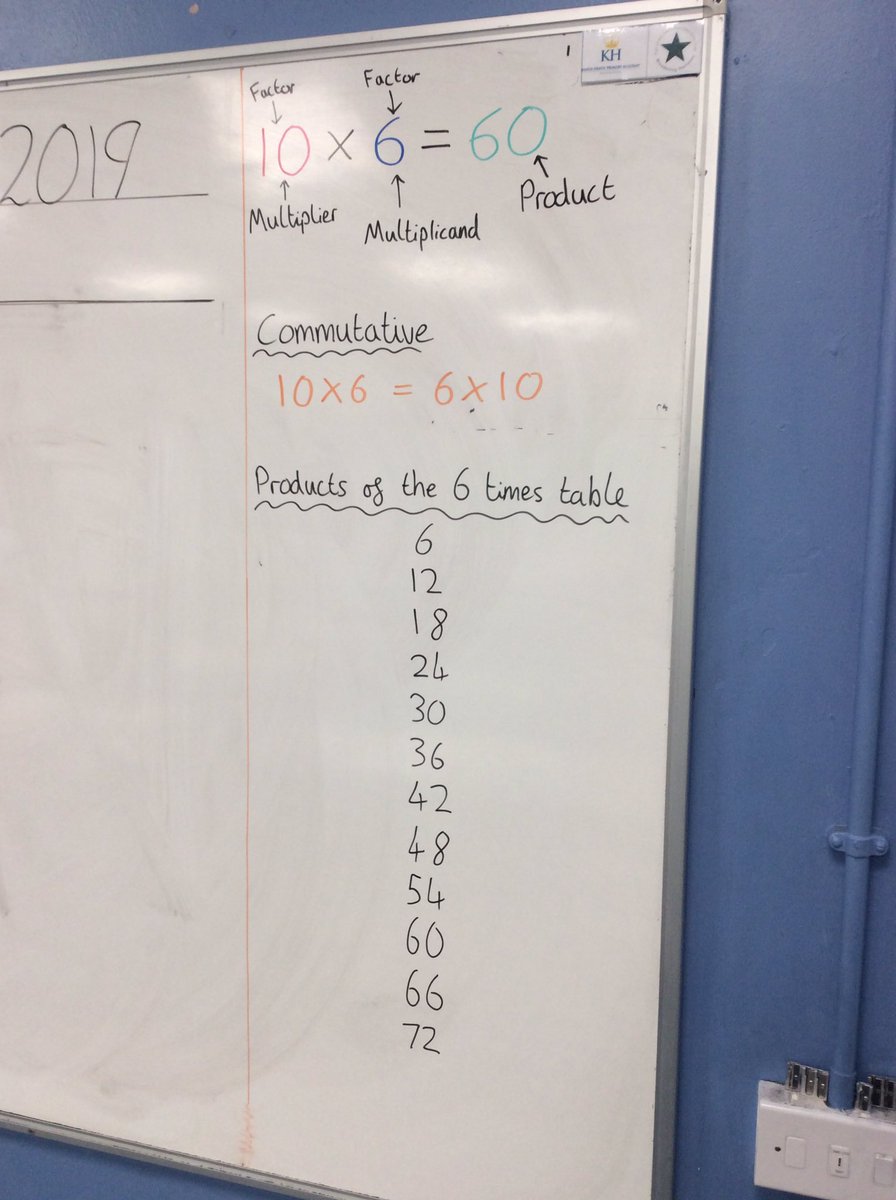 2019
Factor Factor
10 × 6 = 60
Multiplier Multiplicand Product
Commutative
10 × 6 = 6 × 10
Products of the 6 times table
6
12
18
24
30
36
42
48
54
60
66
72
KH